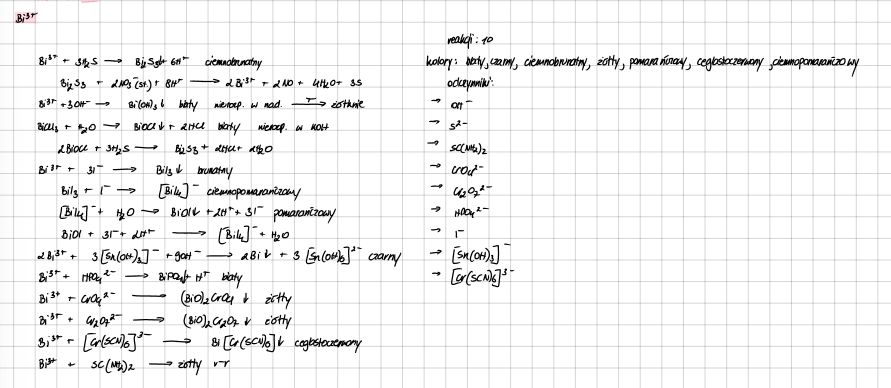 Bi³⁺
Bi³⁺ + 3H₂S → Bi₂S₃↓ + 6H⁺ ciemnobrunatny
Bi₂S₃ + 2NO₃⁻(st.) + 8H⁺ → 2Bi³⁺ + 2NO + 4H₂O + 3S
Bi³⁺ + 3OH⁻ → Bi(OH)₃↓ biały nierozp. w nad. —T→ żółknie
BiCl₃ + H₂O → BiOCl↓ + 2HCl biały nierozp. w KOH
2BiOCl + 3H₂S → Bi₂S₃ + 2HCl + 2H₂O
Bi³⁺ + 3I⁻ → BiI₃↓ brunatny
BiI₃ + I⁻ → [BiI₄]⁻ ciemnopomarańczowy
[BiI₄]⁻ + H₂O → BiOI↓ + 2H⁺ + 3I⁻ pomarańczowy
BiOI + 3I⁻ + 2H⁺ → [BiI₄]⁻ + H₂O
2Bi³⁺ + 3[Sn(OH)₃]⁻ + 9OH⁻ → 2Bi↓ + 3[Sn(OH)₆]²⁻ czarny
Bi³⁺ + HPO₄²⁻ → BiPO₄↓ + H⁺ biały
Bi³⁺ + CrO₄²⁻ → (BiO)₂CrO₄↓ żółty
Bi³⁺ + Cr₂O₇²⁻ → (BiO)₂Cr₂O₇↓ żółty
Bi³⁺ + [Cr(SCN)₆]³⁻ → Bi[Cr(SCN)₆]↓ ceglastoczerwony
Bi³⁺ + SC(NH₂)₂ → żółty r-r
reakcji: 10
kolory: biały, czarny, ciemnobrunatny, żółty, pomarańczowy, ceglastoczerwony, ciemnopomarańczowy
odczynniki:
→ OH⁻
→ S²⁻
→ SC(NH₂)₂
→ CrO₄²⁻
→ Cr₂O₇²⁻
→ HPO₄²⁻
→ I⁻
→ [Sn(OH)₃]⁻
→ [Cr(SCN)₆]³⁻